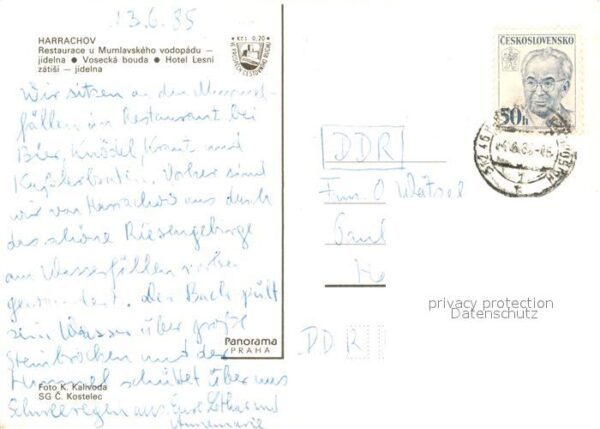 13.6.85
HARRACHOV
Restaurace u Mumlavského vodopádu –
jídelna ● Vosecká bouda ● Hotel Lesní
zátiší – jídelna
Kčs 0,20
Wir sitzen an den Mummel-
fällen im Restaurant bei
Bier, Knödel, Kraut und
Vorher sind
wir von Harrachov aus durch
das schöne Riesengebirge
am Wasserfällen vorbei
gewandert. Der Bach spült
sein Wasser über große
Steinbrocken und der
Himmel schüttet über uns
Schneeregen aus. Eure Lothar und
Annemarie
Foto K. Kalivoda
SG Č. Kostelec
Panorama
PRAHA
ČESKOSLOVENSKO
50h
512 46
DDR
Fam. O
DDR
privacy protection
Datenschutz